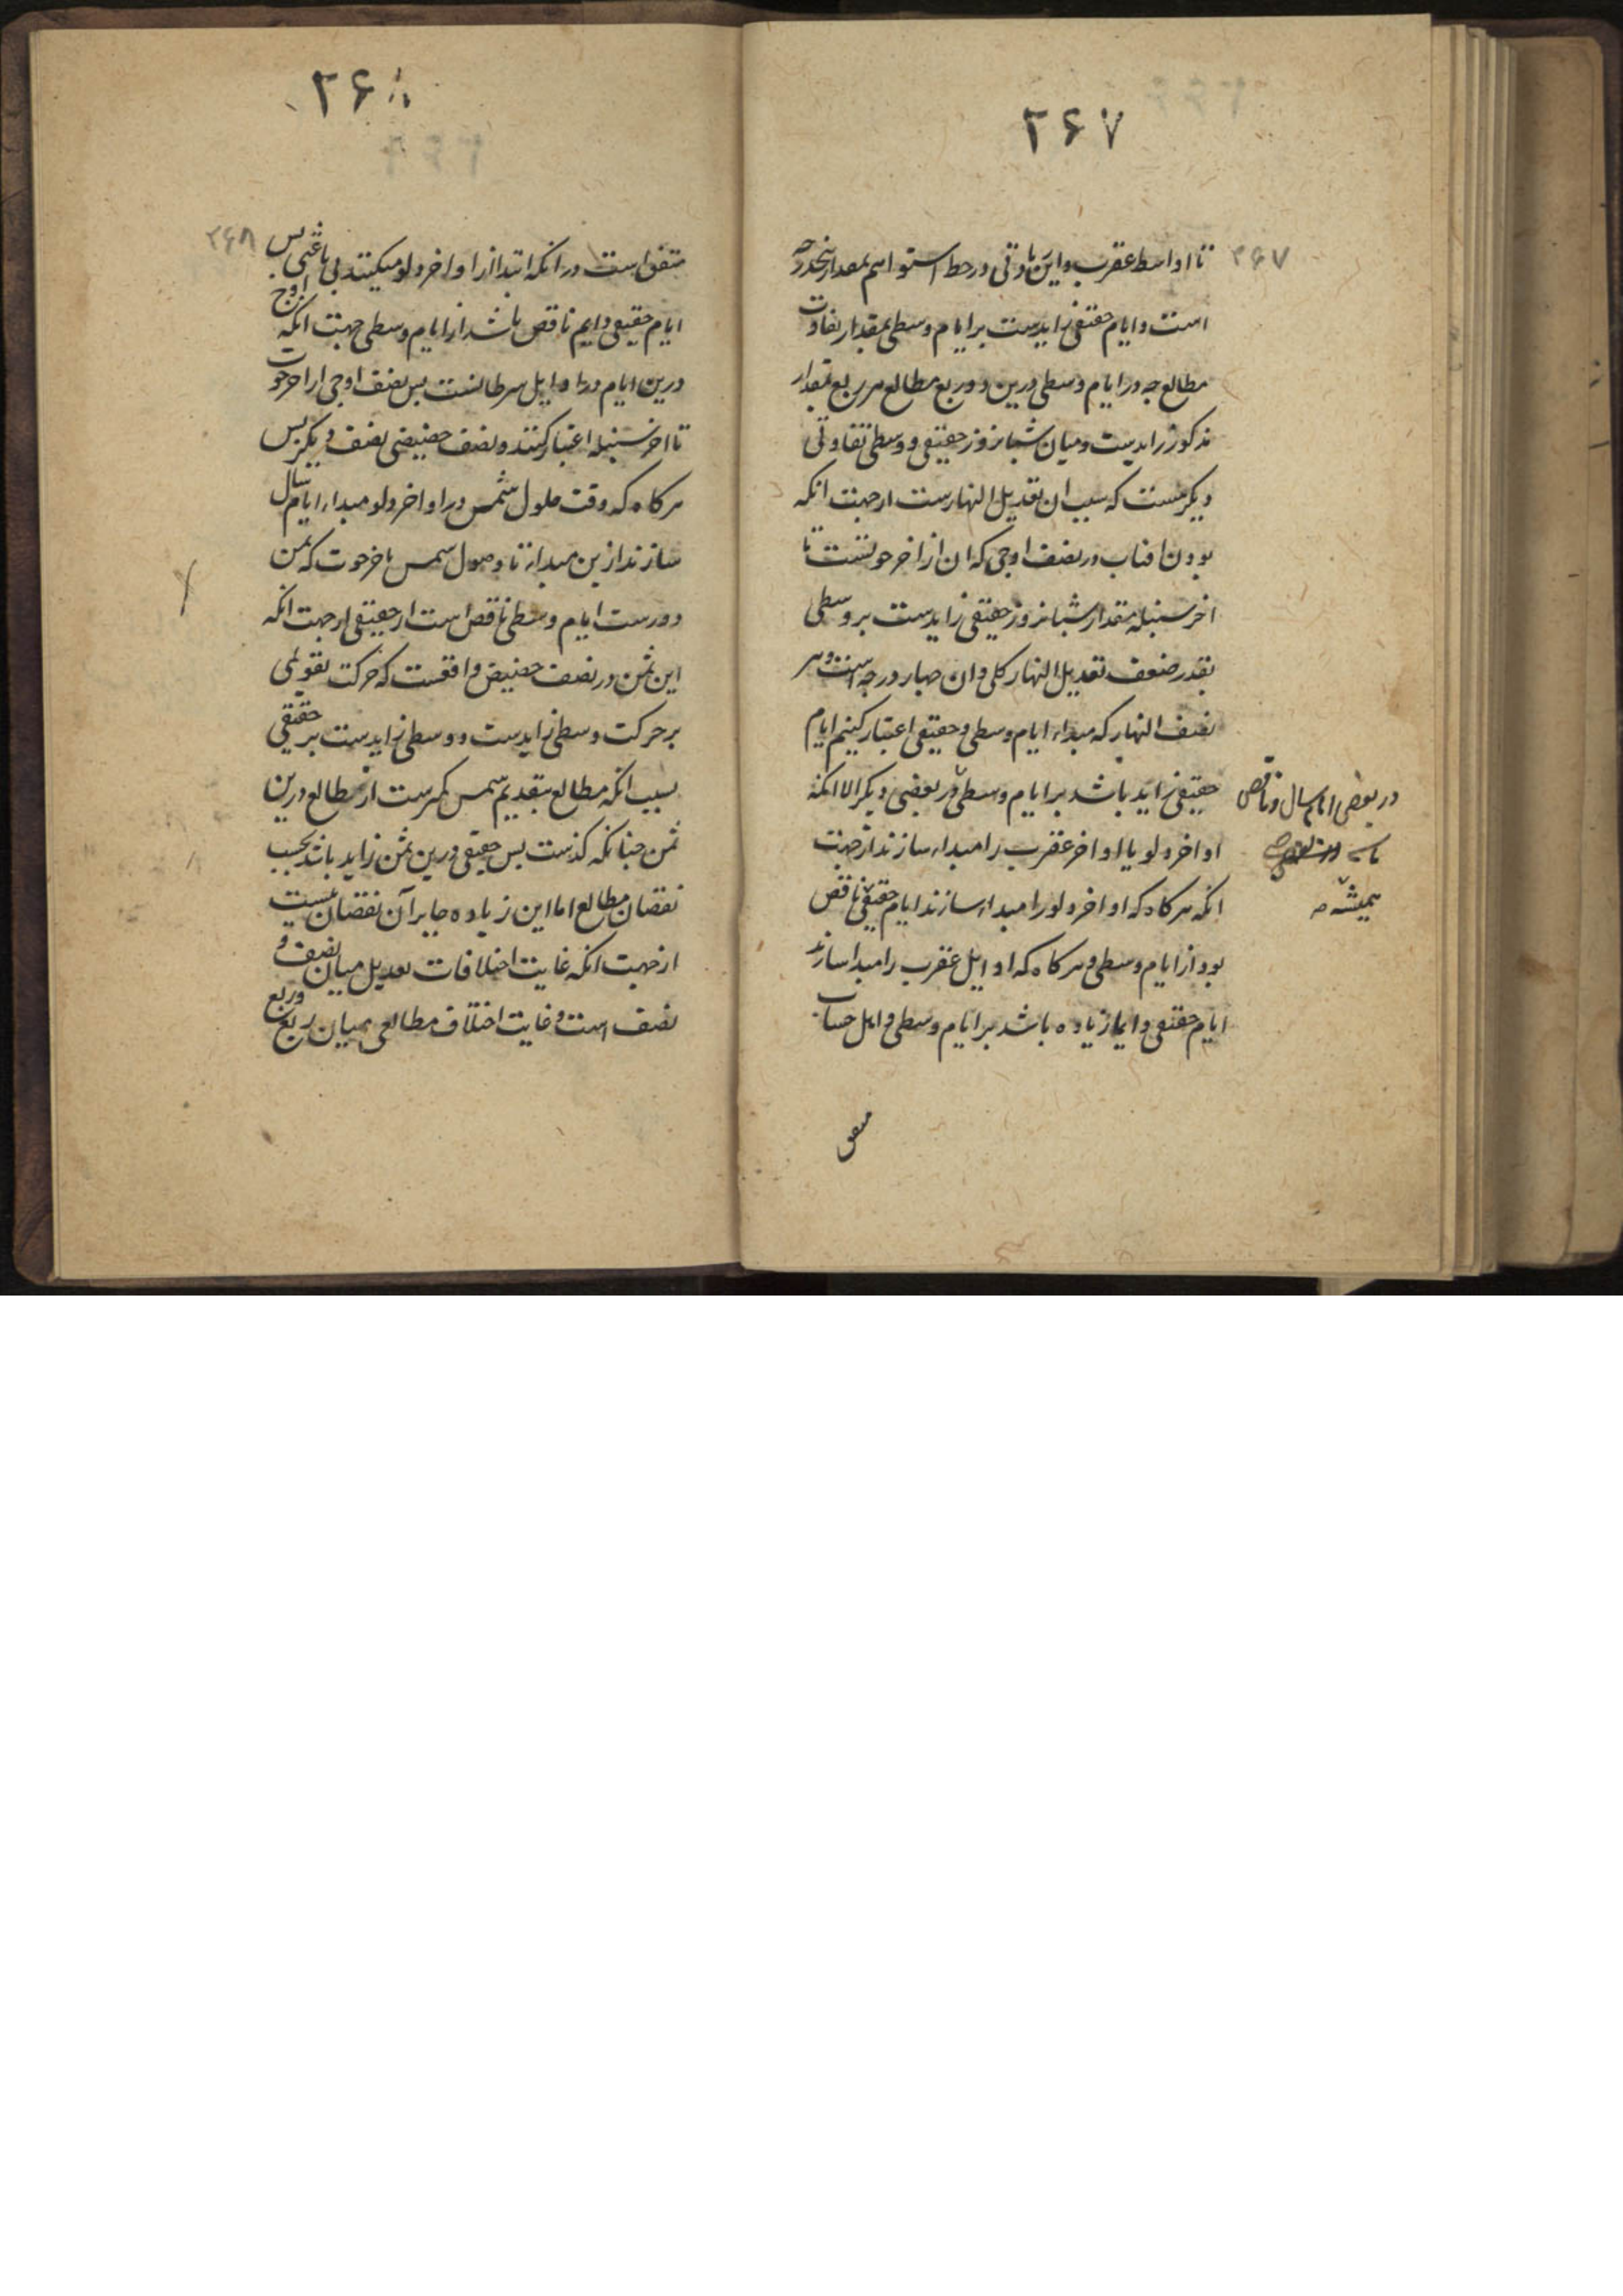 ۲۶۷
۲۶۷
تا اواسط عقرب و این باوقی در خط استوا هم بمقدار پنجدرجه
است و ایام حقیقی زایدست بر ایام وسطی بمقدار تفاوت
مطالع چه در ایام وسطی درین دو ربع مطالع هر ربع بمقدار
مذکور زایدست و میان شبانروز حقیقی و وسطی تفاوتی
دیکر هست که سبب ان تعدیل النهارست ازجهت انکه
بودن افتاب در نصف اوجی که ان از اخر حوتست تا
اخر سنبله مقدار شبانروز حقیقی زایدست بر وسطی
بقدر ضعف تعدیل النهار کلی و ان چهار درجه است و هر
نصف النهار که مبداء ایام وسطی و حقیقی اعتبار کنیم ایام
حقیقی زاید باشد بر ایام وسطی در بعضی دیکر الا انکه
در بعضی ایام سال و ناقص
اواخر دلو یا اواخر عقرب را مبداء سازند ازجهت
انکه هرکاه که اواخر دلو را مبداء سازند ایام حقیقی ناقص
همیشه
بود از ایام وسطی و هرکاه که اوایل عقرب را مبدا سازند
ایام حقیقی دایما زیاده باشد بر ایام وسطی و اهل حساب
متفق
۲۶۸
۲۶۸
متفق است در انکه ابتدا از اواخر دلو میکنند بی باعثی پس
ایام حقیقی دایم ناقص باشد از ایام وسطی جهت انکه اوج
درین ایام در اوایل سرطانست پس نصف اوجی از اخر حوت
تا اخر سنبله اعتبار کنند و نصف حضیضی نصف دیکر پس
هرکاه که وقت حلول شمس در اواخر دلو مبداء ایام سال
سازند ازین مبداء تا وصول شمس باخر حوت که ثمن
دورست ایام وسطی ناقص است از حقیقی ازجهت انکه
این ثمن در نصف حضیض واقعست که حرکت تقویمی
بر حرکت وسطی زایدست و وسطی زایدست بر حقیقی
بسبب انکه مطالع بتقدیم شمس کمترست از مطالع درین
ثمن چنانکه کذشت پس حقیقی درین ثمن زاید باشد بحسب
نقصان مطالع اما این زیاده جابر آن نقصان نیست
ازجهت انکه غایت اختلافات تعدیل میان نصف و
نصف است و غایت اختلاف مطالعی میان ربع و ربع